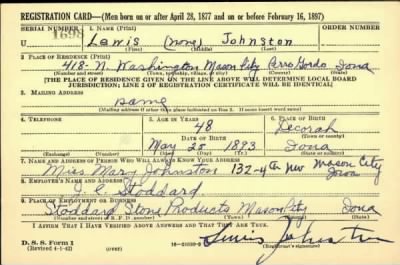 REGISTRATION CARD—(Men born on or after April 28, 1877 and on or before February 16, 1897)
SERIAL NUMBER 1. NAME (Print) ORDER NUMBER
U 1698 Lewis (none) Johnston
(First) (Middle) (Last)
2. PLACE OF RESIDENCE (Print)
418-N. Washington Mason City Cerro Gordo Iowa
(Number and street) (Town, township, village, or city) (County) (State)
[THE PLACE OF RESIDENCE GIVEN ON THE LINE ABOVE WILL DETERMINE LOCAL BOARD
JURISDICTION; LINE 2 OF REGISTRATION CERTIFICATE WILL BE IDENTICAL]
3. MAILING ADDRESS
Same
[Mailing address if other than place indicated on line 2. If same insert word same]
4. TELEPHONE 5. AGE IN YEARS 6. PLACE OF BIRTH
48 Decorah
DATE OF BIRTH (Town or county)
May 25 1893 Iowa
(Exchange) (Number) (Mo.) (Day) (Yr.) (State or country)
7. NAME AND ADDRESS OF PERSON WHO WILL ALWAYS KNOW YOUR ADDRESS
Miss Mary Johnston 132-4th Mason City Iowa
8. EMPLOYER'S NAME AND ADDRESS
Stoddard
9. PLACE OF EMPLOYMENT OR BUSINESS
Stoddard Stone Products Mason City Iowa
(Number and street or R. F. D. number) (Town) (County) (State)
I AFFIRM THAT I HAVE VERIFIED ABOVE ANSWERS AND THAT THEY ARE TRUE.
D. S. S. Form 1
(Revised 4-1-42) (over)
Johnston
(Registrant's signature)